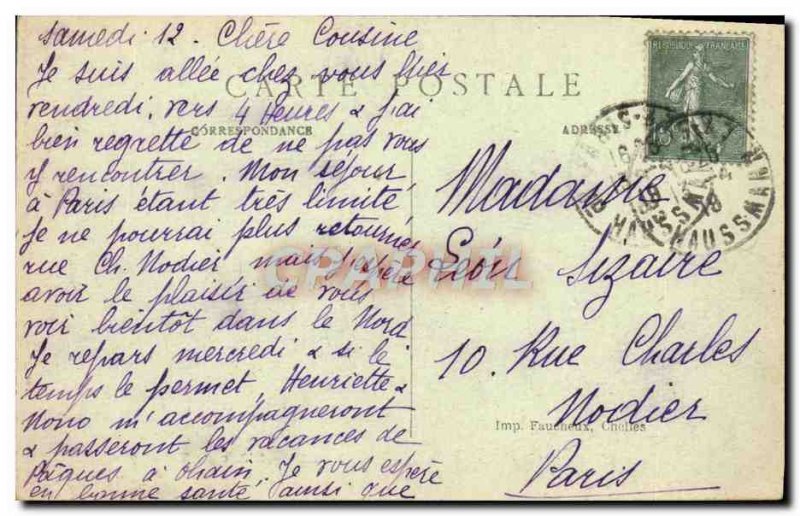 Samedi 12. Chère Cousine
Je suis allée chez vous hier
vendredi, vers 4 Heures & j'ai
bien regretté de ne pas vous
y rencontrer. Mon séjour
à Paris étant très limité
je ne pourrai plus retourner
rue Ch. Nodier mais j'espère
avoir le plaisir de vous
voir bientôt dans le Nord
Je repars mercredi & si le
temps le permet, Henriette &
Nono m'accompagneront
& passeront les vacances de
Pâques à Je vous espère
en bonne santé ainsi que
CARTE POSTALE
CORRESPONDANCE
ADRESSE
REPUBLIQUE FRANÇAISE
15
PARIS
HAUSSMANN
HAUSSMANN
Madame
Léon Sizaire
10. Rue Charles
Nodier
Imp. Faucheux, Chelles
Paris
CPAPHIL